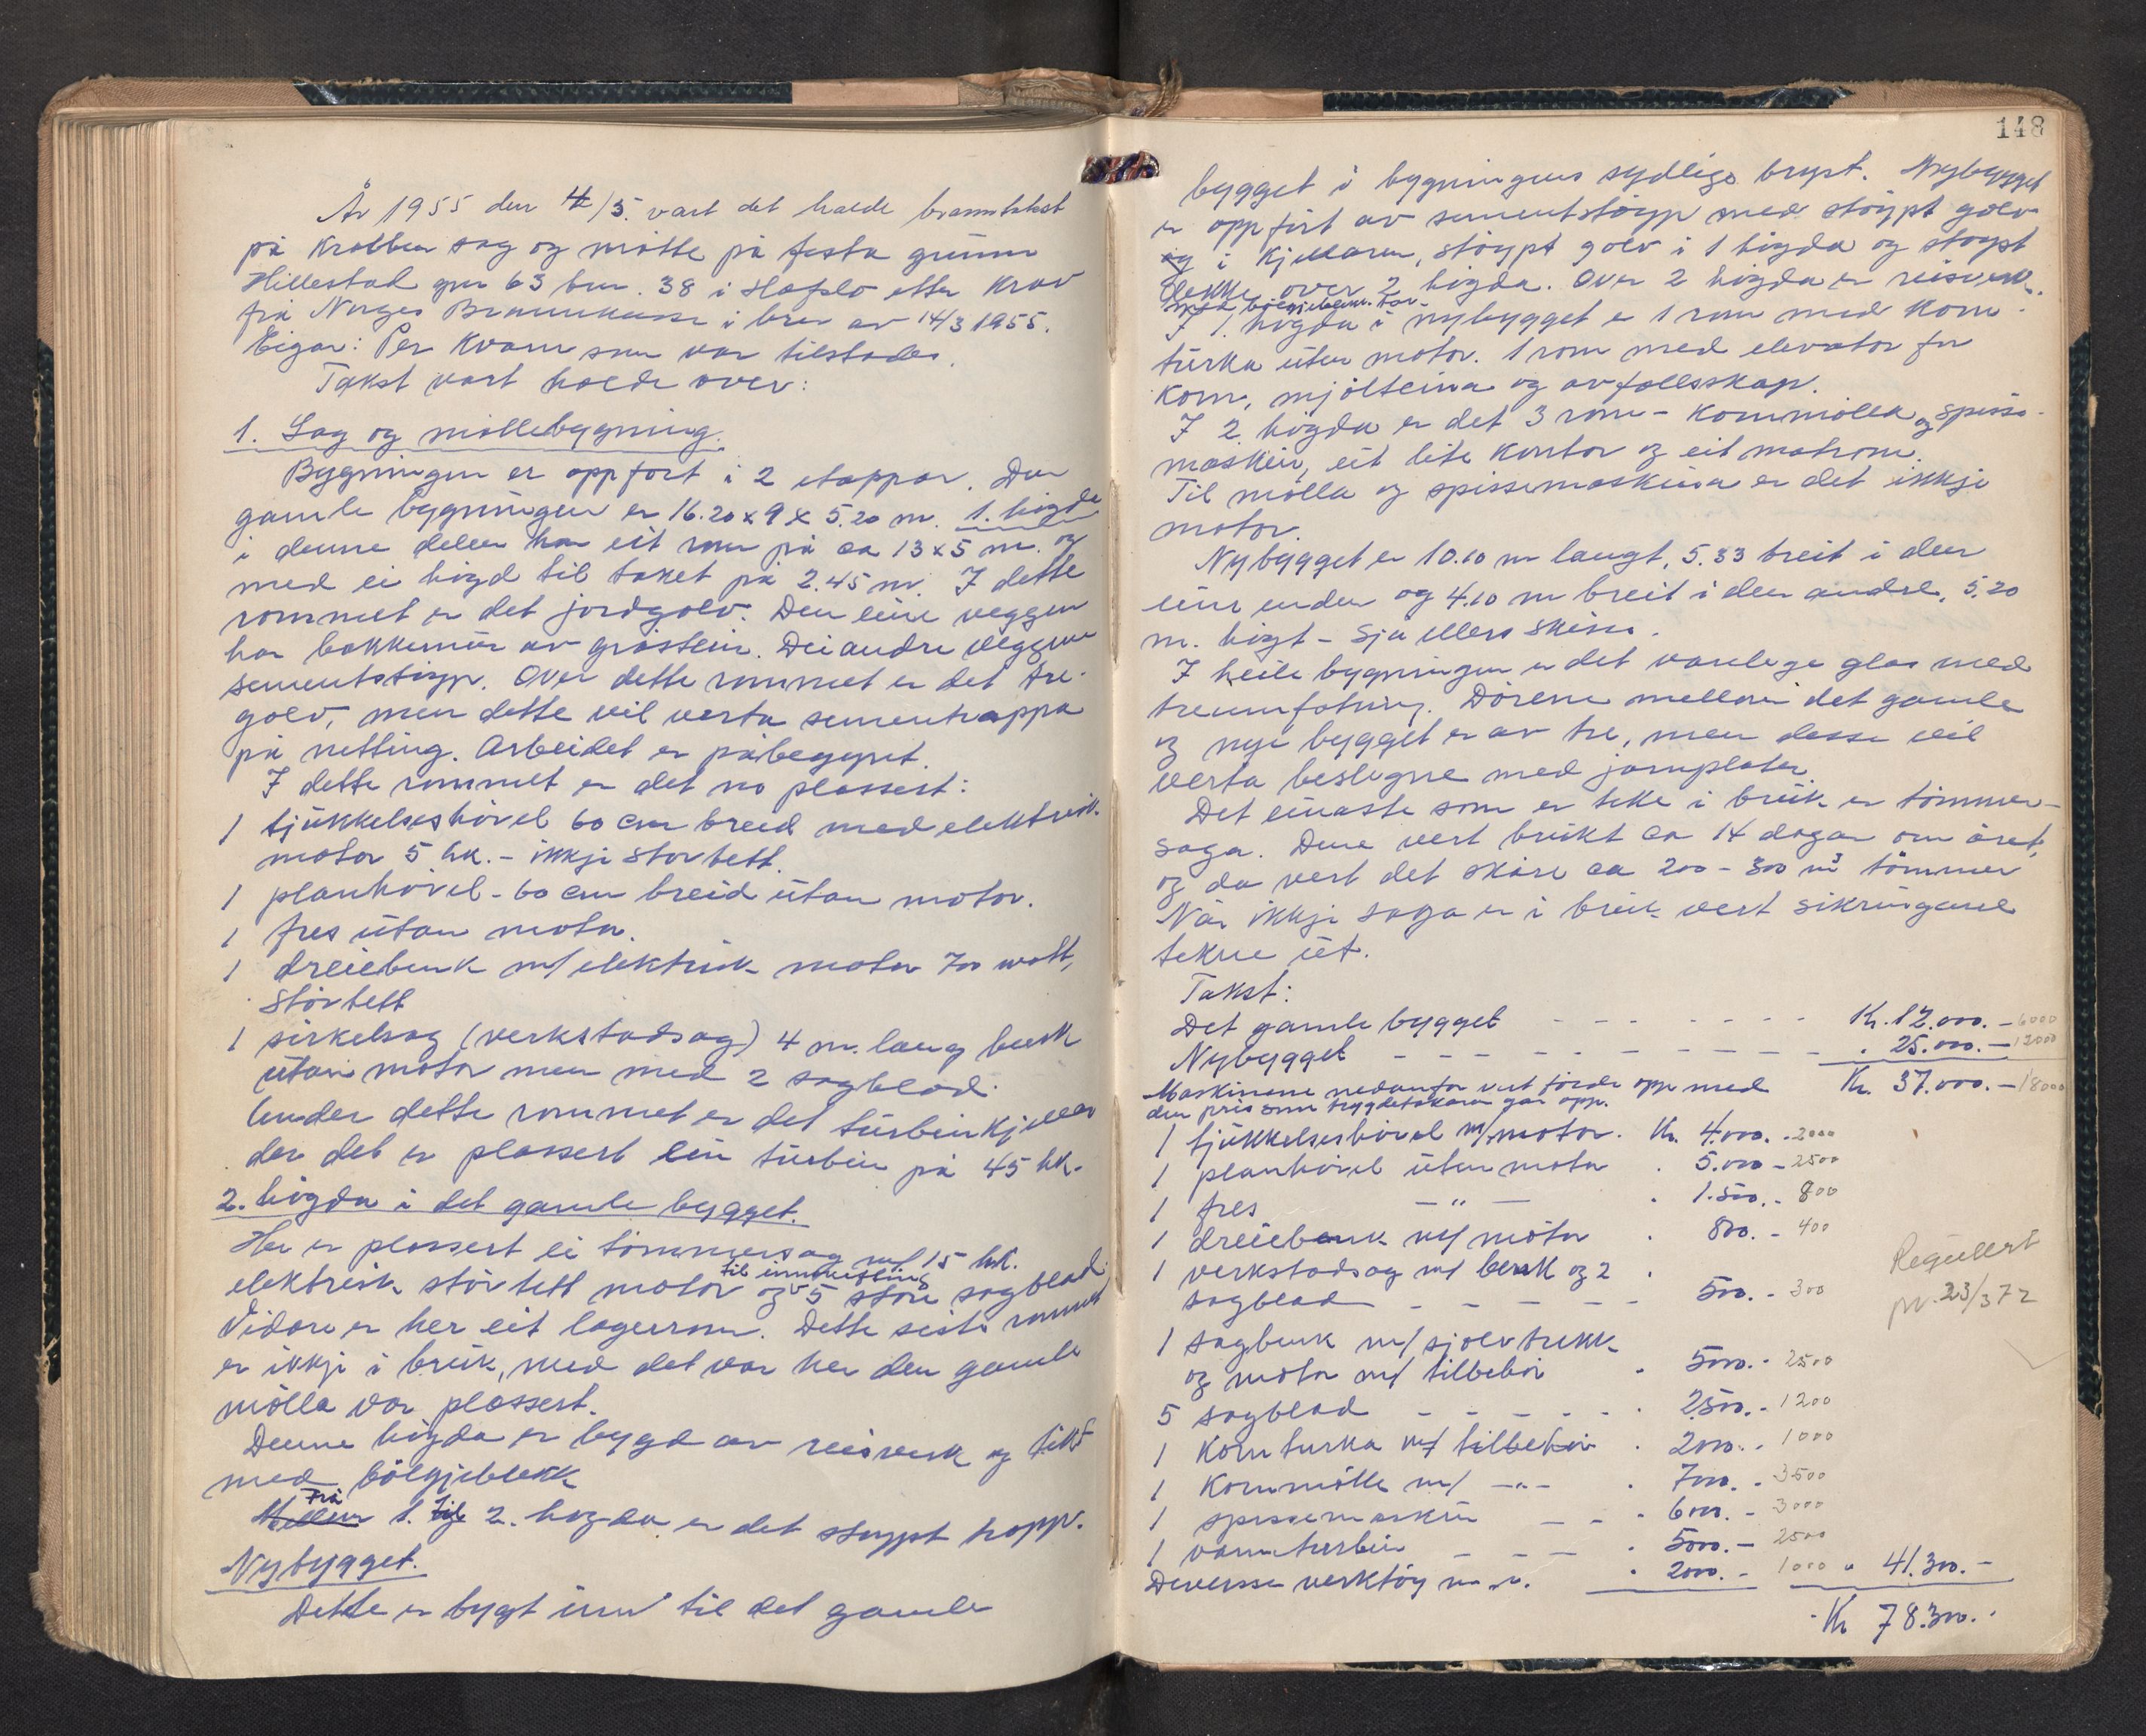 År 1955 den 4/5. vart det halde branntakst
på Kroken sag og mølle på festa grunn
Hillestad gnr 63 bnr. 38 i Hafslo etter krav
frå Norges Brannkasse i brev av 14/3 1955.
Eigar: Per Kvam som var tilstades.
Takst vart halde over:
1. Sag og møllebygning.
Bygningen er oppført i 2 etappar. Den
gamle bygningen er 16.20 x 9 x 5.20 m. 1. høgda
i denne delen har eit rom på ca 13 x 5 m. og
med ei høgd til taket på 2.45 m. I dette
rommet er det jordgolv. Den eine veggen
har bakkemur av gråstein. Dei andre veggene
sementstøyp. Over dette rommet er det tre-
golv, men dette vil verta sementrappa
på netting. Arbeidet er påbegynt.
I dette rommet er det no plassert:
1 tjukkelseshøvel 60 cm breid med elektrisk
motor 5 hk. - ikkje støvtett.
1 planhøvel - 60 cm breid utan motor.
1 fres utan motor.
1 dreiebenk m/ elektrisk motor 700 watt,
støvtett
1 sirkelsag (verkstadsag) 4 m. lang benk
utan motor men med 2 sagblad.
Under dette rommet er det turbinkjellar
der det er plassert ein turbin på 45 hk.
2. høgda i det gamle bygget.
Her er plassert ei tømmersag m/ 15 hk.
elektrisk støvtett motor og 5 store sagblad.
til innhusting
Vidare er her eit lagerrom. Dette siste rommet
er ikkje i bruk, med det var her den gamle
mølla var plassert.
Denne høgda er bygd av reisverk og tekt
med bølgjeblekk
Frå
Mellom 1. til 2. høgda er det støypt trapp.
Nybygget.
Dette er bygt inn til det gamle
148
bygget i bygningens sydlige bryst. Nybygget
er oppført av sementstøyp med støypt golv
og i kjellaren, støypt golv i 1 høgda og støypt
dekke over 2 høgda. Over 2 høgda er reisverk.
med bølgjeblekk. tak.
I 1. høgda i nybygget er 1 rom med korn-
turka uten motor. 1 rom med elevator for
korn, mjølbinga og avfallsskap.
I 2. høgda er det 3 rom - Kornmølla og spisse-
maskin, eit lite kontor og eit matrom.
Til mølla og spissemaskina er det ikkje
motor.
Nybygget er 10.10 m langt, 5.33 breit i den
eine enden og 4.10 m breit i den andre, 5.20
m. høgt - Sjå ellers skisse.
I heile bygningen er det vanlege glas med
treinnfatning. Dørene mellom det gamle
og nye bygget er av tre, men desse vil
verta beslegne med jarnplater.
Det einaste som er teke i bruk er tømmer-
saga. Dene vert brukt ca 14 dagar om året,
og da vert det skåre ca 200 - 300 m³ tømmer
Når ikkje saga er i bruk vert sikringane
tekne ut.
Takst:
Det gamle bygget - - - - - - - Kr. 12.000. - 6000
Nybygget - - - - - - - - - - " 25.000. - 12000
Maskinene nedanfor vert førde opp med Kr. 37.000. - 18000
den pris som trygdetakaren gav opp.
1 tjukkelseshøvel m/motor. Kr. 4.000. - 2000
1 planhøvel uten motor " 5.000 - 2500
1 fres - " - " 1.500. - 800
1 dreiebenk m/ motor " 800. - 400
1 verkstadsag m/ benk og 2
sagblad - - - - - " 500. - 300
1 sagbenk m/ sjølvtrekk
og motor m/ tilbehør " 5000. - 2500
5 sagblad - - - - - " 2500. - 1200
1 Kornturka m/ tilbehør " 2000. - 1000
1 Kornmølle m/ - " - " 7000. - 3500
1 spissemaskin - - " 6000. - 3000
1 vannturbin - - - " 5000. - 2500
Diversse verktøy m.v. " 2000. - 1000 " 41.300. -
Kr 78.300. -
Regulert
pr. 23/3 72